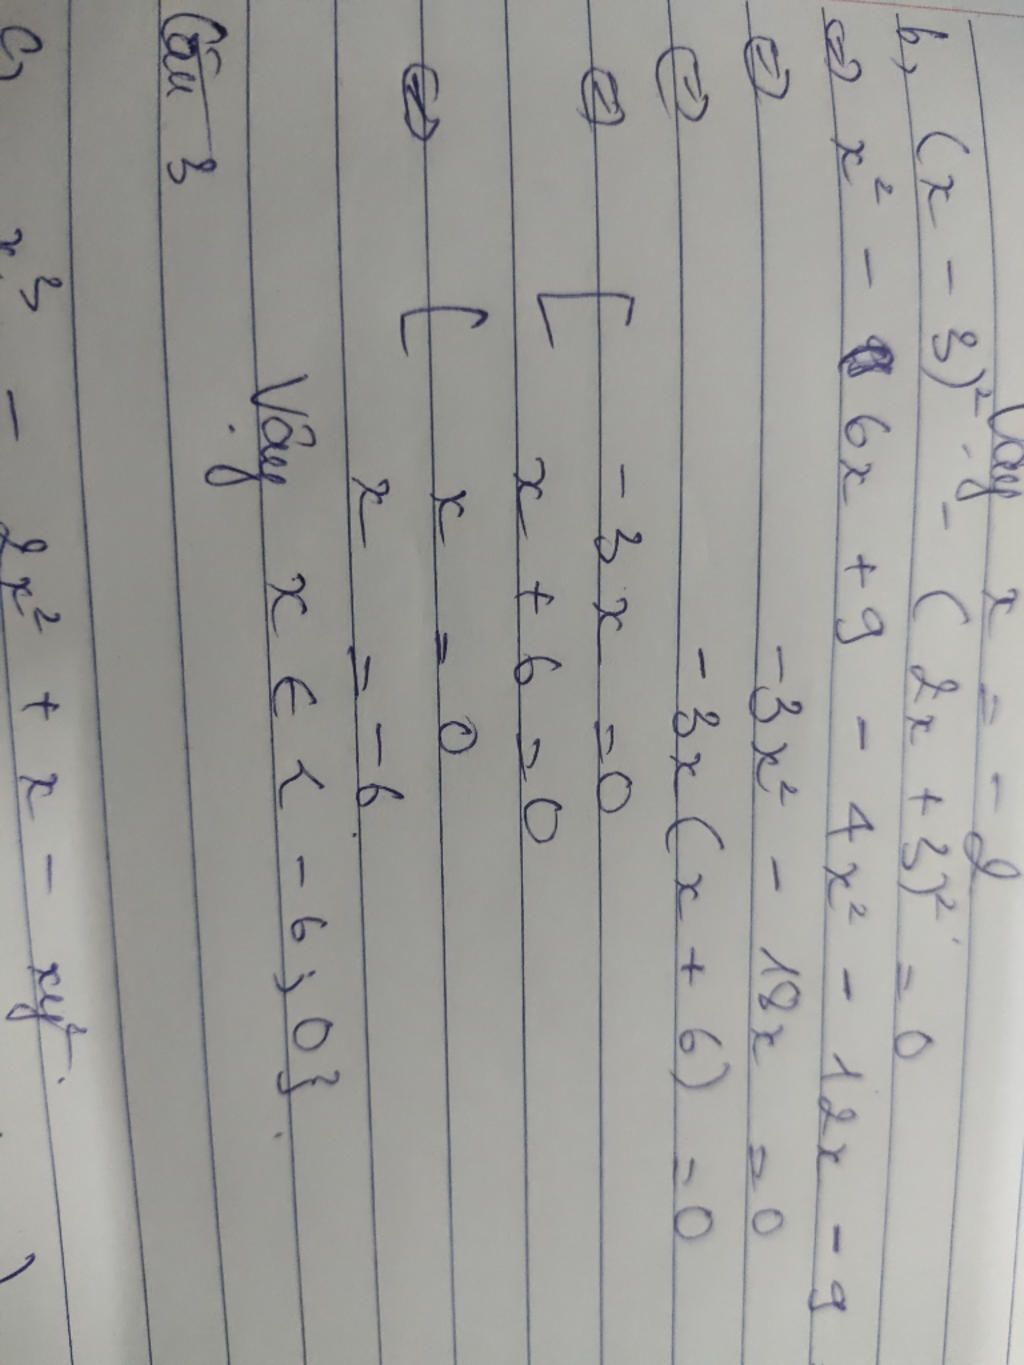 Vậy x = -2
b, (x - 3)² - (2x + 3)² = 0
⇔ x² - 6x + 9 - 4x² - 12x - 9
⇔ -3x² - 18x = 0
⇔ -3x(x + 6) = 0
⇔ [ -3x = 0
x + 6 = 0
⇔ [ x = 0
x = -6.
Vậy x ∈ { -6; 0}.
Câu 3
x³ - 2x² + x - xy².